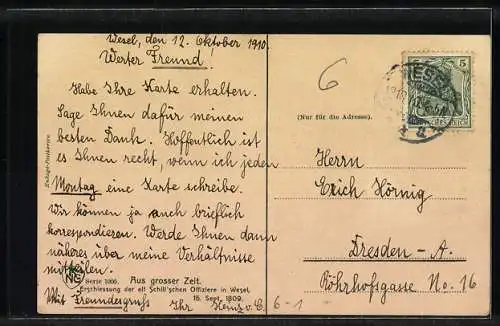 Wesel, den 12. Oktober 1910.
Werter Freund!
Habe Ihre Karte erhalten.
Sage Ihnen dafür meinen
besten Dank. Hoffentlich ist
es Ihnen recht, wenn ich jeden
Montag eine Karte schreibe.
Wir können ja auch brieflich
korrespondieren. Werde Ihnen dann
näheres über meine Verhältnisse
mitteilen.
NG
Serie 1006. Aus grosser Zeit.
Erschiessung der elf Schill'schen Offiziere in Wesel,
16. Sept. 1809.
Mit Freundesgruß Ihr Heinz v. C.
6-1
6
(Nur für die Adresse.)
WESEL
5
Herrn
Erich Hörnig
Dresden-A.
Röhrhofsgasse No. 16